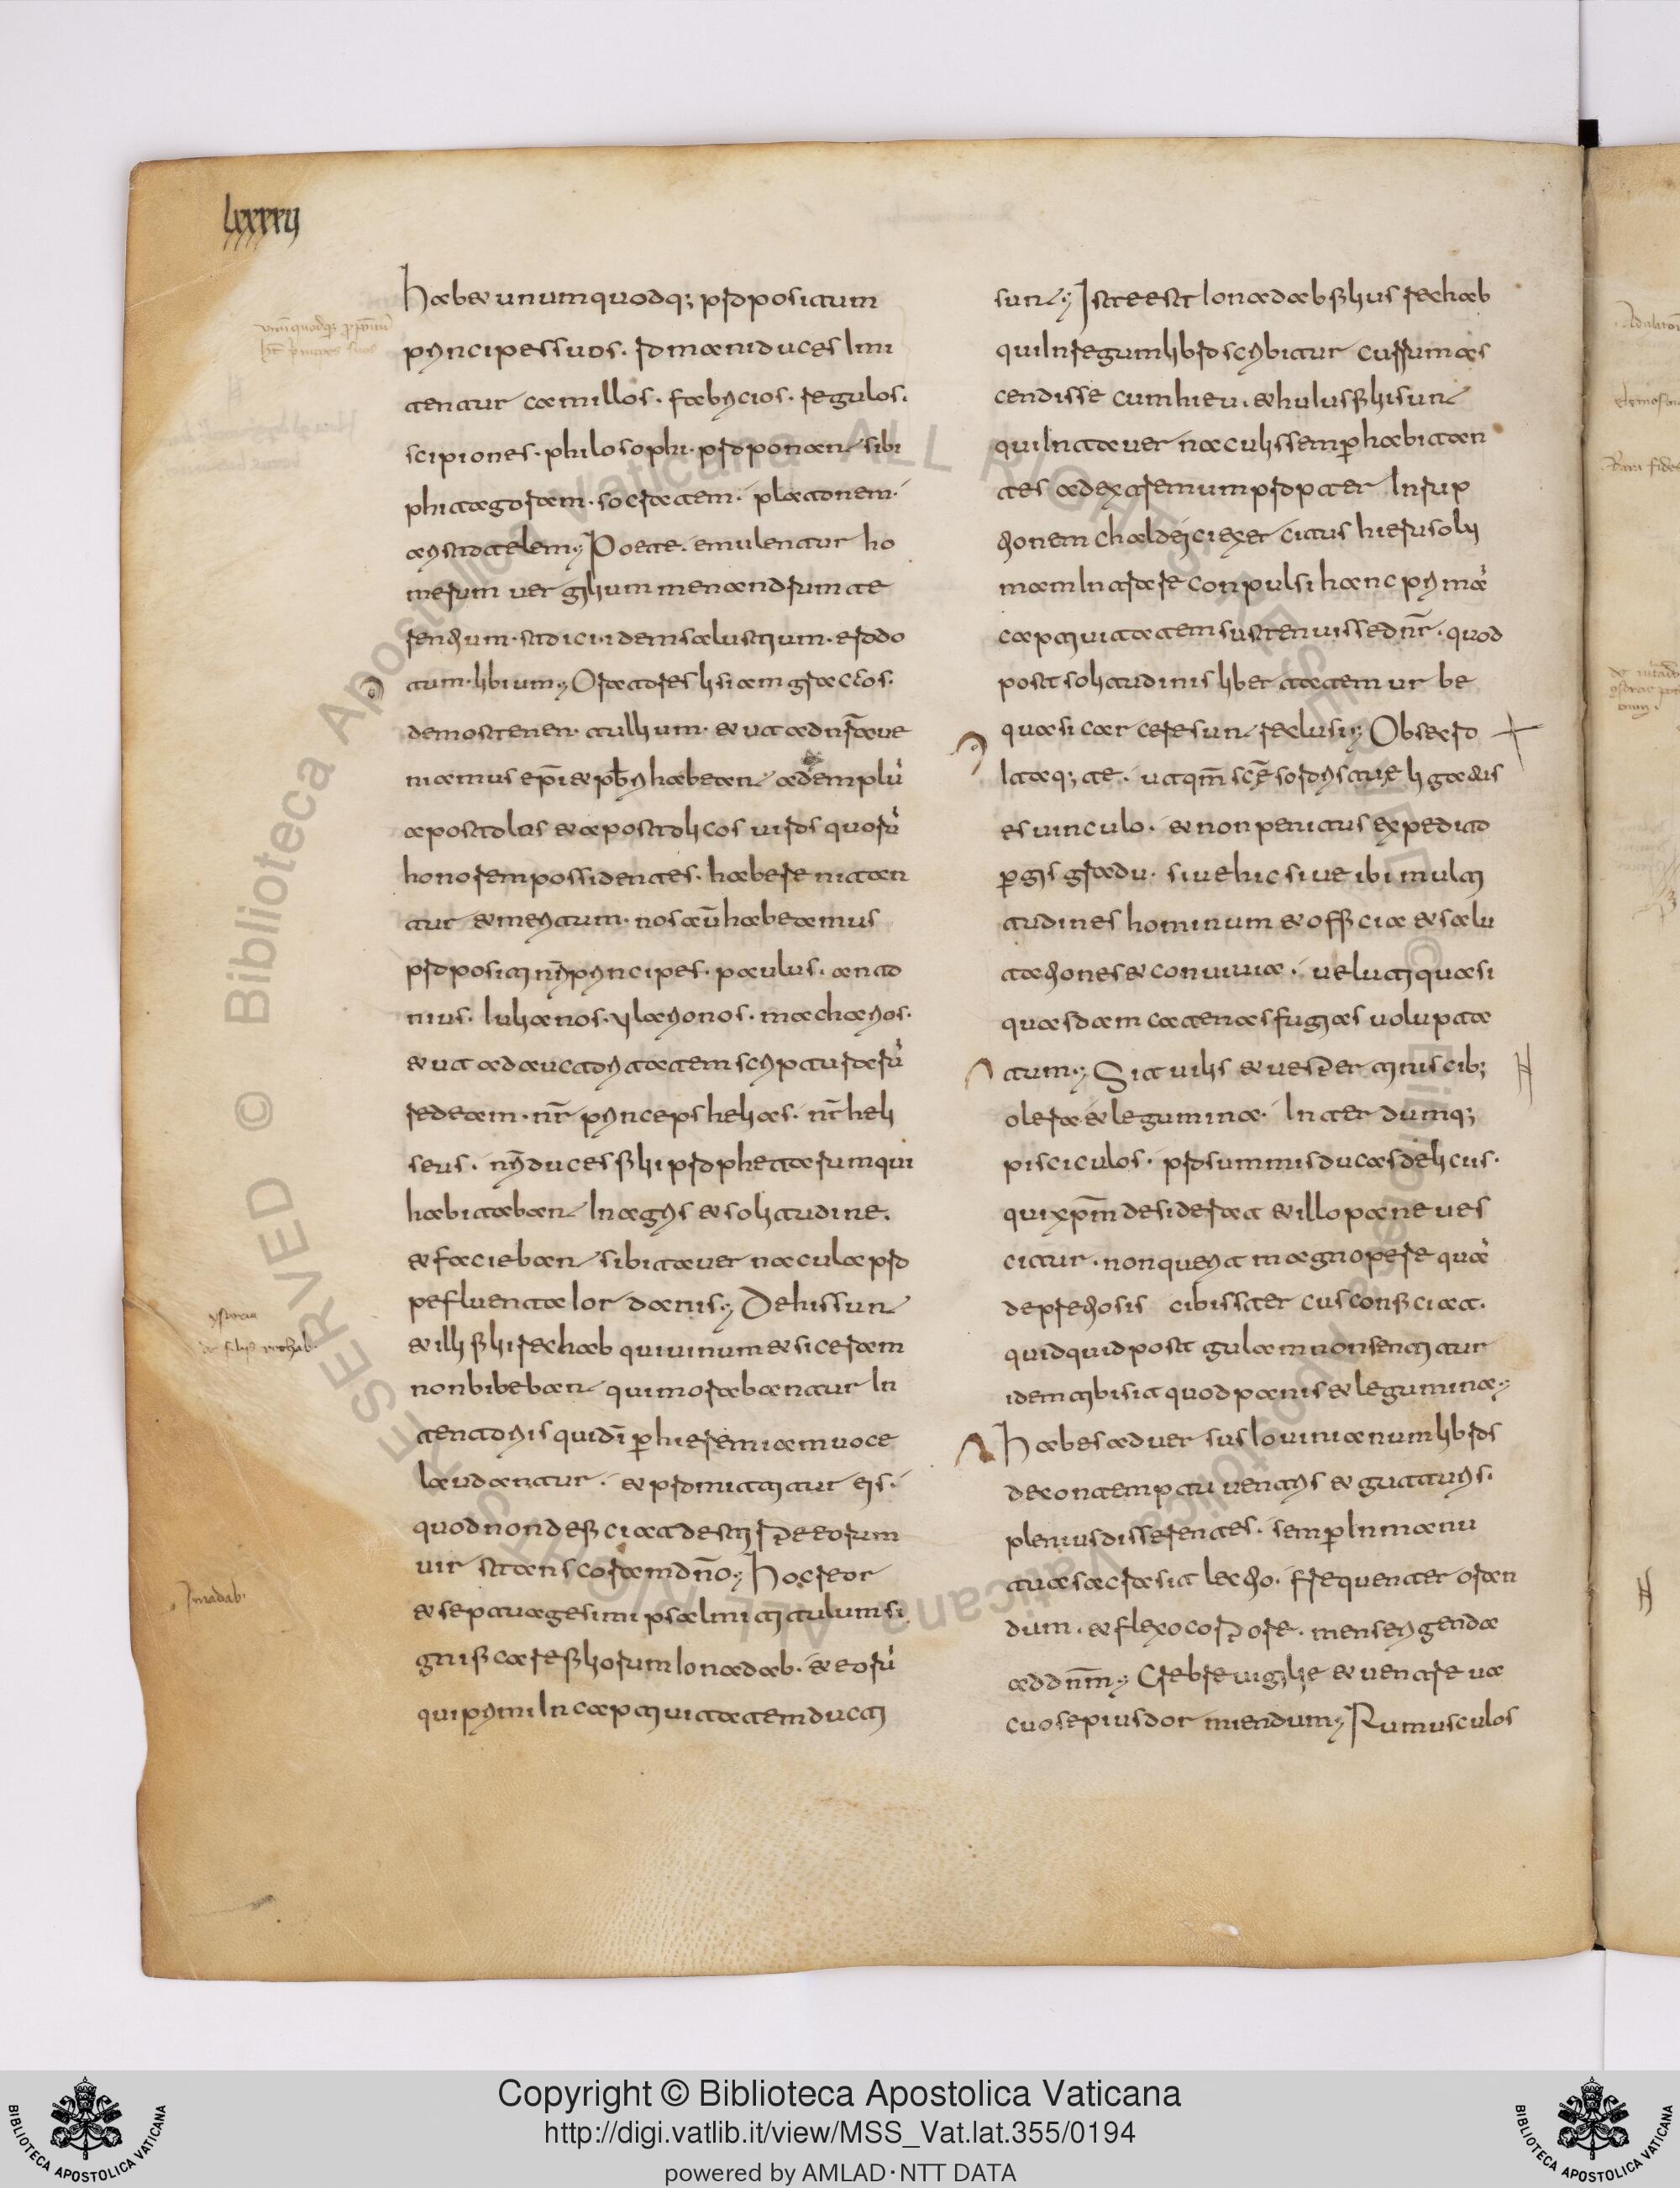 lxxxxii
Habet unumquodq; propositum
principes suos. romani duces imi
tentur camillos. fabricios. regulos.
scipiones. philosophi. proponant sibi
phitagoram. socratem. platonem.
aristotelem; Poete. emulentur ho
merum uergilium menandrum te
rentium. storici. idem salustium. erodo
tum. libium; Oratores lisiam graccos.
demostenen. tullium. et ut ad nr̄a ue
niamus ep̄i et pr̄bi habeant ademplū
apostolus et apostolicos uiros quorū
honorem possidentes. habere nitan
tur et meritum. nos aū habeamus
propositi nr̄i principes. paulus. anto
nius. Iulianos. ylarionos. macharios.
et ut ad auctoritatem scripturarū
redeam. nr̄ princeps helias. nr̄ heli
seus. nr̄i duces filii prophetarum qui
habitabant In agris et solitudine.
et faciebant sibi tauernacula pro
pe fluenta Iordanis; De his sunt
et illi filii rechab qui uinum et siceram
non bibebant qui morabantur In
tentoriis qui dī per hieremiam uoce
laudantur. et promittitur eis.
quod non deficiat de stirpe eorum
uir stans coram dn̄o; Hoc reor
et septuagesimi psalmi titulum si
gnificare filiorum Ionadab. et eorū
qui primi In captiuitatem ducti
sunt; Iste est Ionadab filius rechab
qui In regum libro scribitur currum as
cendisse cum hieu. et huius filii sunt
qui In tauernaculis semper habitan
tes ad extremum propter Inrup
tionem chaldeici exercitus hierusoly
mam Intrare conpulsi hanc primā
captiuitatem sustenuisse dn̄r. quod
post solitudinis libertatem ur be
quasi carcere sunt reclusi; Obsecro
Itaq; te. ut qm̄ scē sororis tuae ligatus
es uinculo. et non penitus expedito
pergis gradu. siue hic siue ibi multi
tudines hominum et officia et salu
tationes et conuiuia. ueluti quasi
quasdam catenas fugias uolupta
tum; Sit uilis et uespertinis cib;
olera et legumina. Interdumq;
pisciculos. pro summis ducas delicus.
qui xp̄m desiderat et illo pane ues
citur. non querit magnopere quā
de pretiosis cibis stercus conficiat.
quidquid post gulam non sentitur
idem tibi sit quod panis et legumina;
Habes aduersus Iouinianum libros
de contemptu uentris et gutturis.
plenius disserentes. semper In manu
tua sacra sit lectio. frequenter oran
dum. et flexo corpore. mens erigenda
ad dn̄m; Crebre uigiliae et uentre ua
cuo sepius dormiendum; Rumusculos
ystoria
de filijs rechab.
Jonadab.
Copyright © Biblioteca Apostolica Vaticana
http://digi.vatlib.it/view/MSS_Vat.lat.355/0194
powered by AMLAD·NTT DATA
BIBLIOTECA APOSTOLICA VATICANA
BIBLIOTECA APOSTOLICA VATICANA